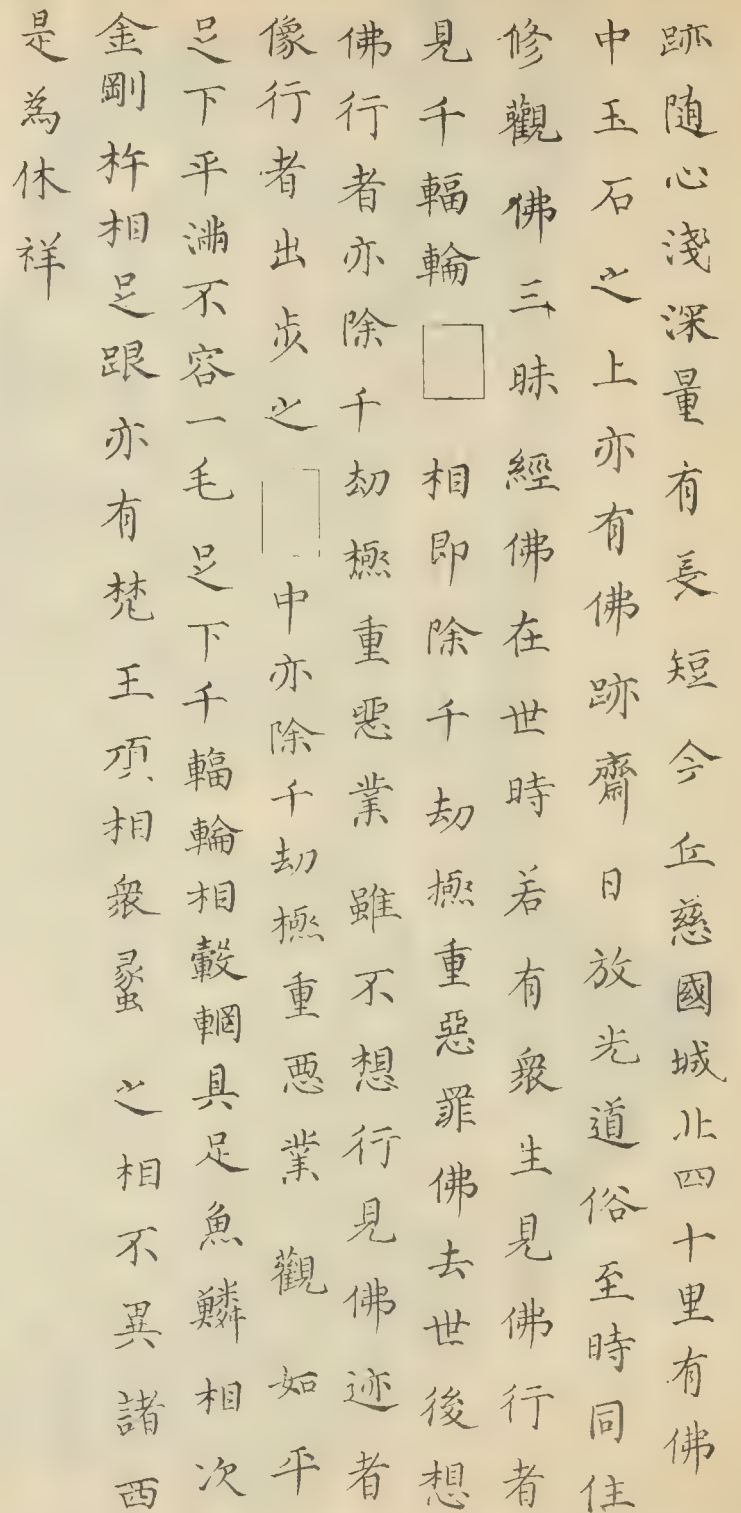 跡随心淺深量有長短今丘慈國城北四十里有佛
中玉石之上亦有佛跡齋日放光道俗至時同往
修觀佛三昧經佛在世時若有衆生見佛行者
見千輻輪相即除千劫極重惡罪佛去世後想
佛行者亦除千劫極重惡業雖不想行見佛迹者
像行者出步之中亦除千劫極重惡業觀如平
足下平満不容一毛足下千輻輪相轂輞具足魚鱗相次
金剛杵相足跟亦有梵王頂相衆蠡之相不異諸西
是為休祥